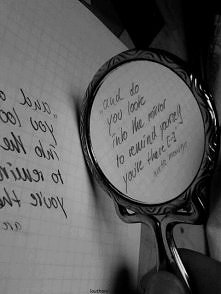 „and do
you look
into the mirror
to remind yourself
you're there [-]
"and d
you look
into the
to remin
you're the
are